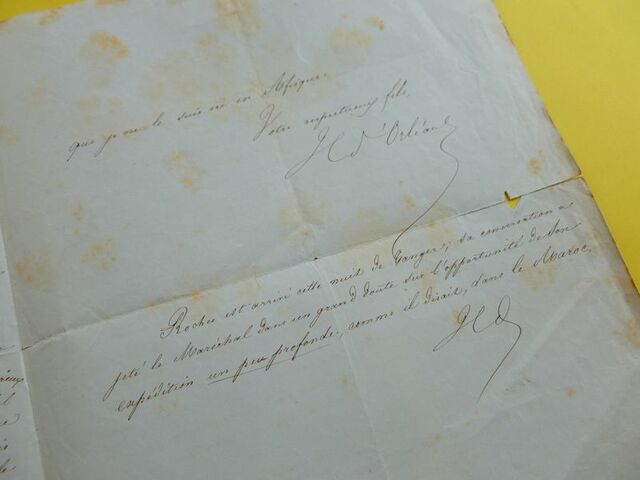 que je ne le suis ici en Afrique.
Votre respectueux fils,
H d'Orléans
Roches est arrivé cette nuit de Tanger; sa conversation a
jeté le Maréchal dans un grand doute sur l'opportunité de son
expédition un peu profonde, comme il disait, dans le Maroc.
H d